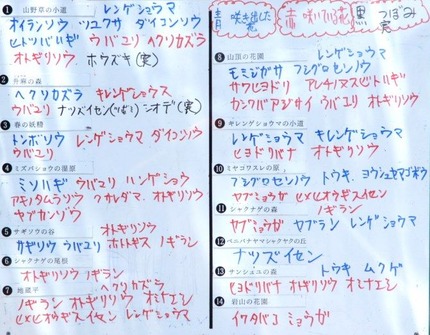 青 咲き出した花 赤 咲いている花 黒 つぼみ 実
❶ 山野草の小道 レンゲショウマ
オイランソウ ツユクサ ダイコンソウ
ヒトツバハギ ウバユリ ヘクソカズラ
オトギリソウ ホウズキ(実)
❷ 升麻の森
ヘクソカズラ キレンゲショウマ
ウバユリ ナツズイセン(つぼみ) シオデ(実)
❸ 春の妖精
トンボソウ レンゲショウマ ダイコンソウ
ウバユリ
❹ ミズバショウの湿原
ミソハギ ウバユリ ハンゲショウ
アキノタムラソウ クサレダマ オトギリソウ
ヤブカンゾウ
❺ サギソウの谷 オトギリソウ
サギソウ ウバユリ ホトトギス ノギラン
❻ シャクナゲの尾根
オトギリソウ ノギラン
❼ 地蔵平 ヘクソカズラ
ノギラン オトギリソウ オミナエシ
ヒメヒオウギズイセン レンゲショウマ
❽ 山頂の花園 レンゲショウマ
モミジガサ フシグロセンノウ
サワヒヨドリ アレチノヌスビトハギ
カシワバアジサイ ウバユリ オトギリソウ
❾ キレンゲショウマの小道
レンゲショウマ キレンゲショウマ
ヒヨドリバナ オトギリソウ
❿ ミヤコワスレの原
フシグロセンノウ トウキ ヨウシュヤマゴボウ
ヤブミョウガ ヒメヒオウギズイセン
⓫ シャクナゲの森 ノギラン
ヤブミョウガ ヤブラン レンゲショウマ
⓬ ベニバナヤマシャクヤクの丘
ナツズイセン
⓭ サンシュユの森 トウキ ムクゲ
ヒヨドリバナ オトギリソウ オミナエシ
⓮ 岩山の花園
イワタバコ ミョウガ